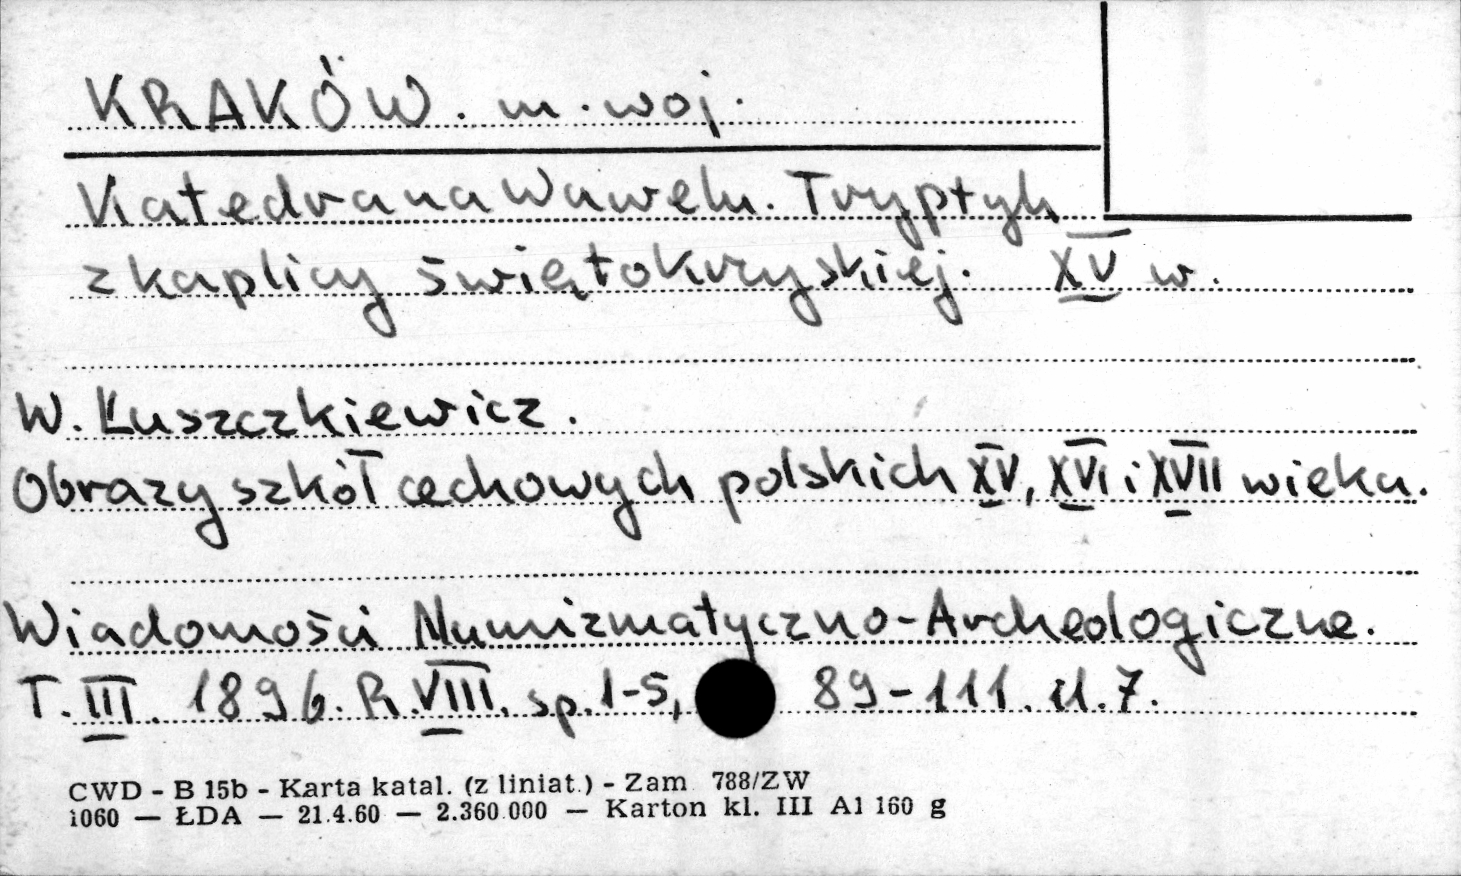 KRAKÓW. m. woj.
Katedra na Wawelu. Tryptyk
z kaplicy świętokrzyskiej. XV w.
W. Łuszczkiewicz.
Obrazy szkół cechowych polskich XV, XVI i XVII wieku.
Wiadomości Numizmatyczno-Archeologiczne.
T. III. 1896. R. VIII. sp. 1-5, 89-111. il. 7.
CWD - B 15b - Karta katal. (z liniat.) - Zam 788/ZW
1060 — ŁDA — 21.4.60 — 2.360.000 — Karton kl. III A1 160 g